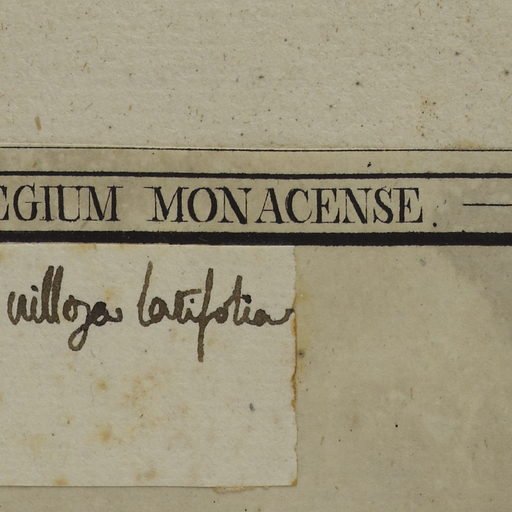 EGIUM MONACENSE.
villoza latifolia